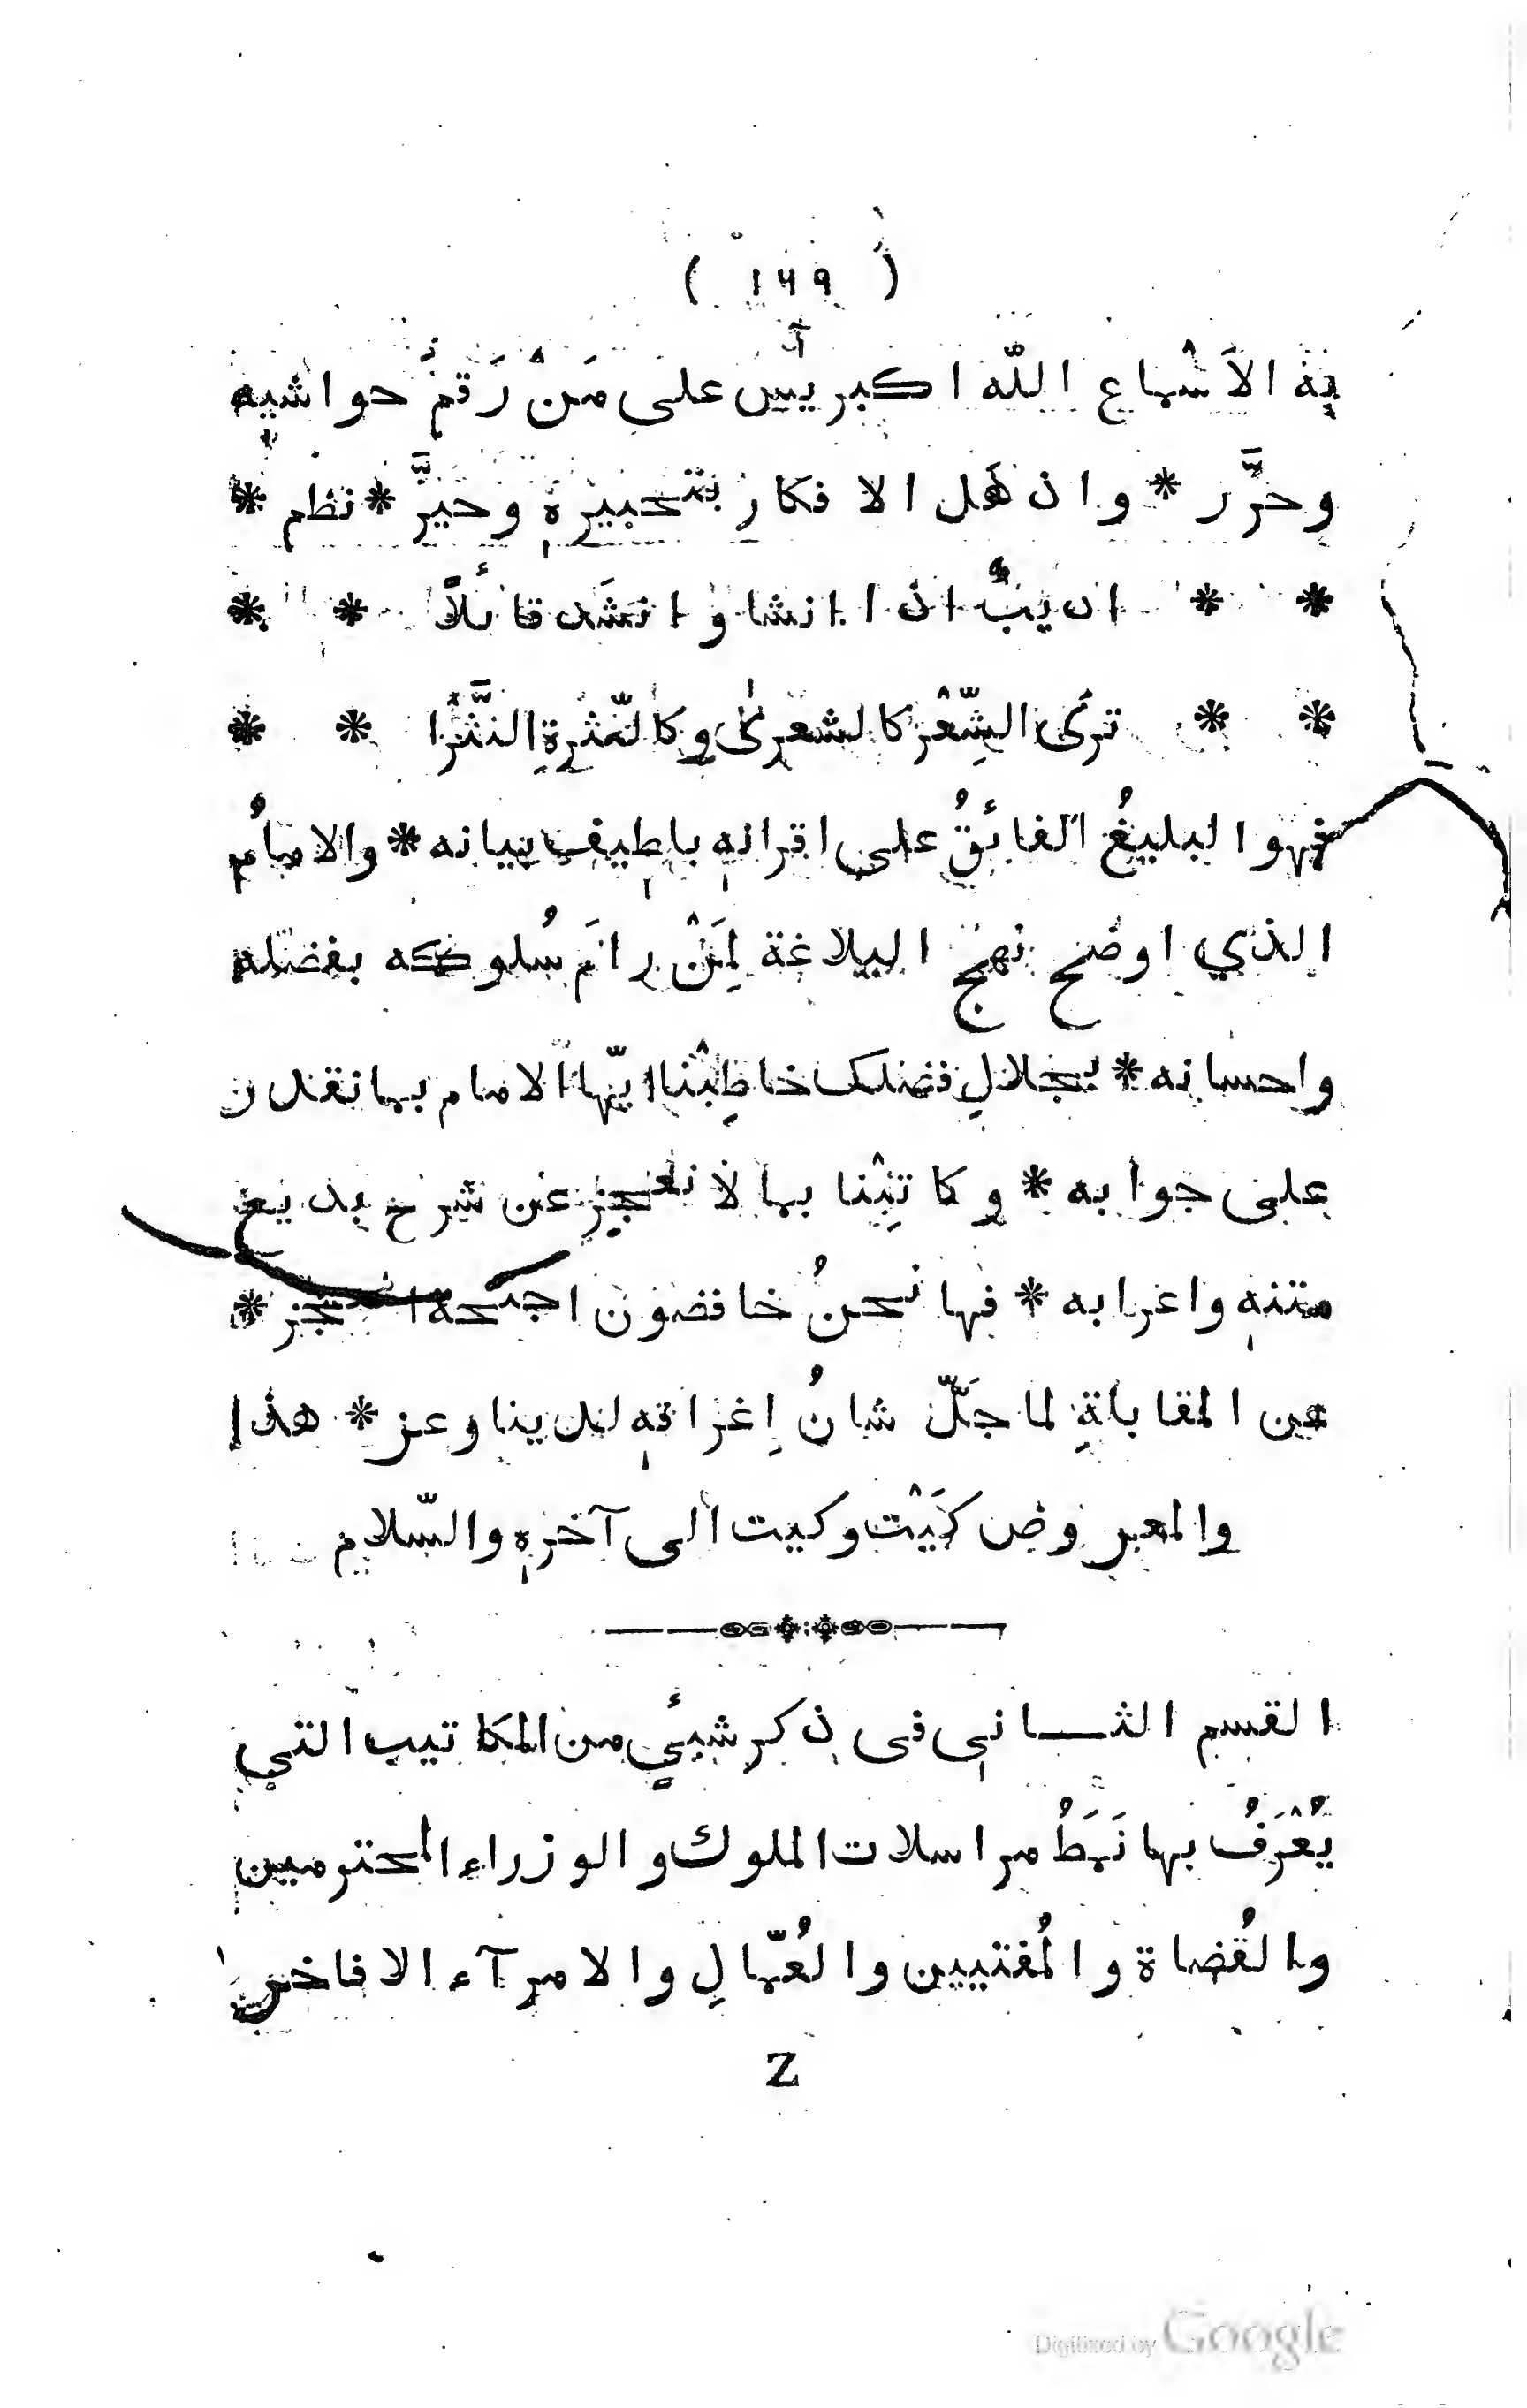 ( ١٦٩ )
بِهِ الاَسْماع اللّٰه اكبر علی مَنْ رَقَمَ حواشيه
وحرَّر * وان هَل الافكار بتحبيرهٖ وحيَّر * نظم *
* * اديبٌ اذا انشا وانشَد قائلًا * *
* * تری الشِّعْر كالشعریٰ وكالنّثرةِ النَّثْرا * *
فهو البليغُ الفائقُ علی اقرانهٖ بلطيف بيانه * والامامُ
الذي اوضح نهج البلاغة لِمَنْ رامَ سُلوكه بفضله
واحسانه * بجلالِ فضلك خاطِبْنا ايّها الامام بما نقدر
علی جوابه * وكاتِبْنا بما لا نعجز عن شرح بديع
متنهٖ واعرابه * فها نحنُ خافضون اجنحة العجز *
عن المقابلةِ لما جَلّ شانُ إغراقهٖ لدينا وعز * هذا
والمعروض كَيْت وكيت الی آخرهٖ والسّلام
القسم الثـــانی فی ذكر شيئٍ من المكاتيب التي
يُعْرَفُ بها نَمَطُ مراسلات الملوك والوزراء المحترمين
والقُضاة والمُفتيين والعُمّالِ والامرآء الافاخر
Z
Digitized by Google